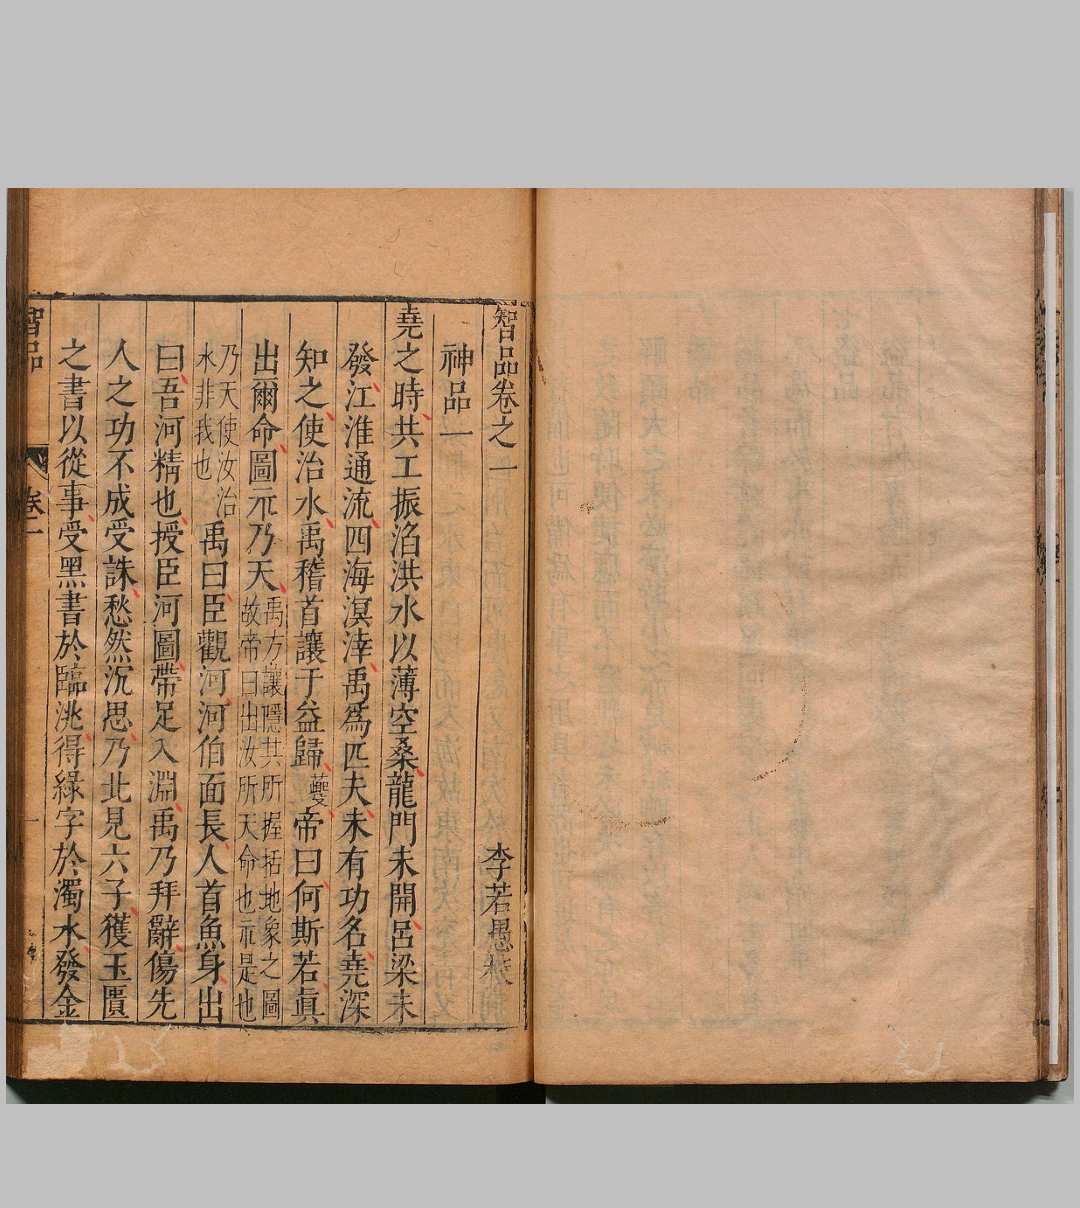 智品卷之一 李若愚校
神品一
堯之時共工振滔洪水以薄空桑龍門未開呂梁未
發江淮通流四海溟涬禹爲匹夫未有功名堯深
知之使治水禹稽首讓于益歸夔帝曰何斯若眞
出爾命圖示乃天禹方讓隱共所握括地象之圖
故帝曰出汝所天命也示是也
乃天使汝治
水非我也
禹曰臣觀河河伯面長人首魚身出
曰吾河精也授臣河圖帶足入淵禹乃拜辭傷先
人之功不成受誅愁然沉思乃北見六子獲玉匱
之書以從事受黑書於臨洮得綠字於濁水發金
智品
卷一
一